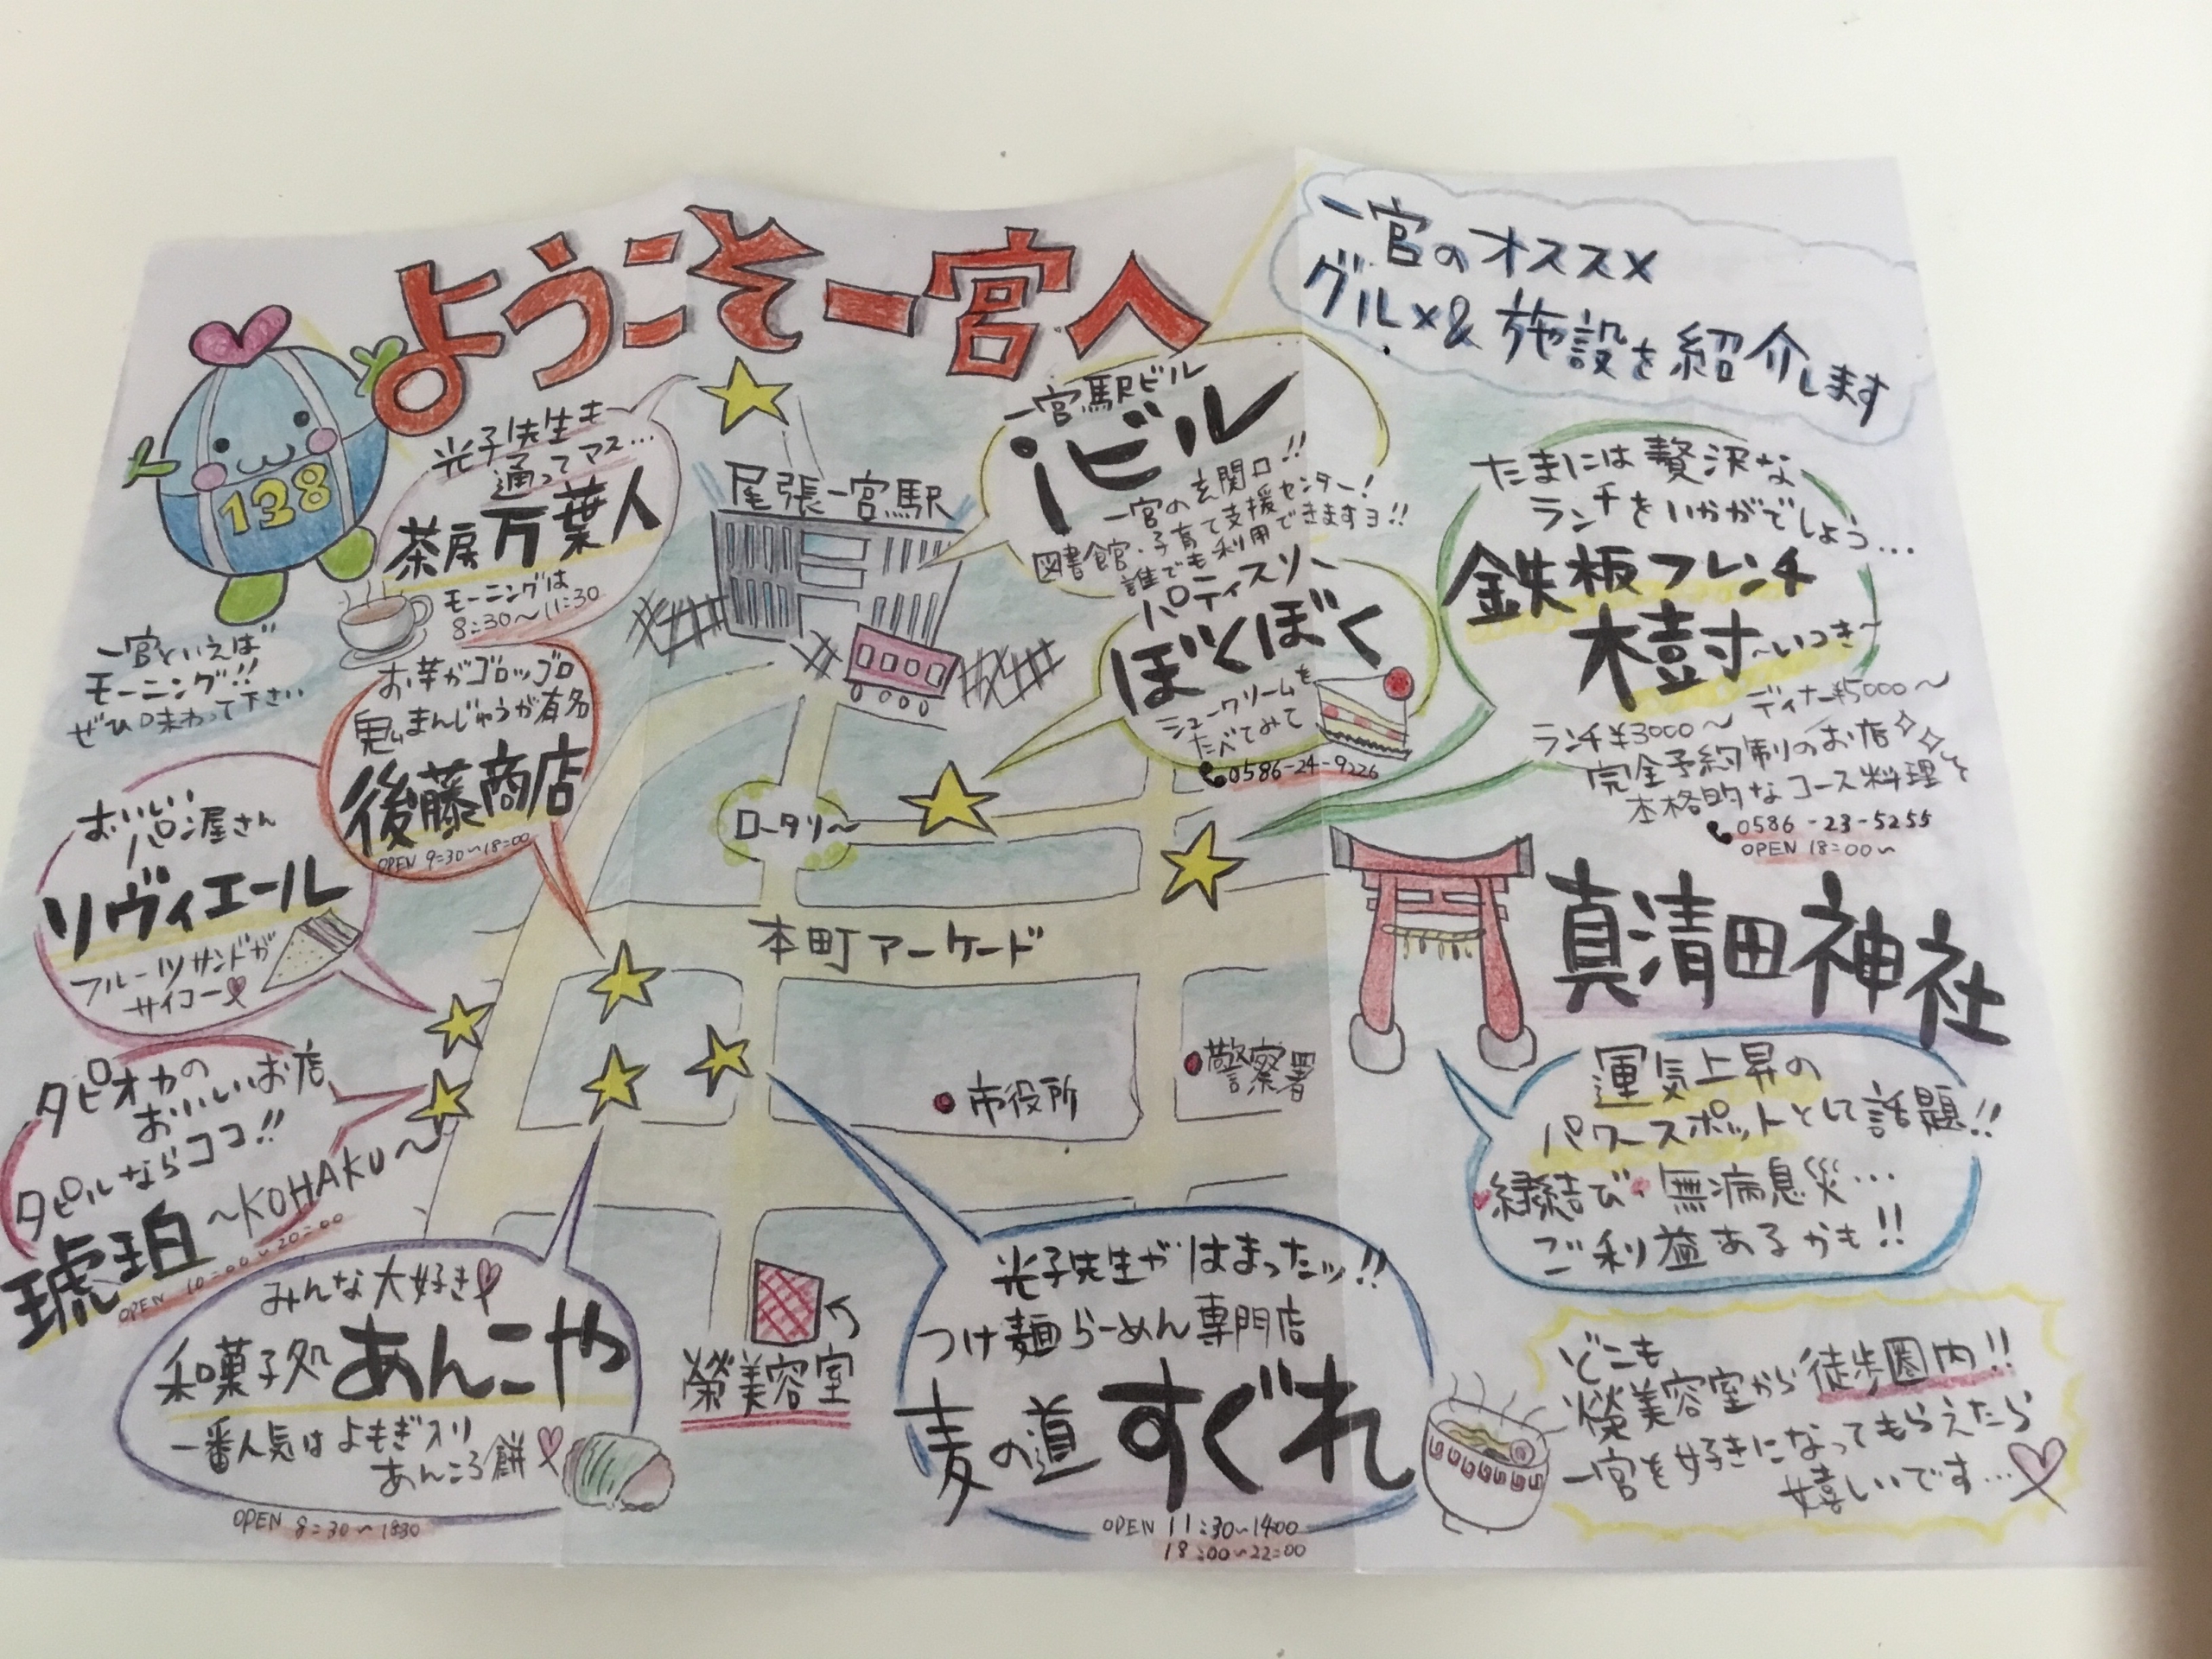 ようこそ一宮へ
一宮のオススメ
グルメ&施設を紹介します
138
一宮といえば
モーニング!!
ぜひ味わって下さい
光子先生も
通ってマス…
茶房万葉人
モーニングは
8:30～11:30
尾張一宮駅
一宮駅ビル
iビル
一宮の玄関口!!
図書館・子育て支援センター!
誰でも利用できますヨ!!
パティスリー
ぼくぼく
シュークリームを
たべてみて
0586-24-9226
たまには贅沢な
ランチをいかがでしょう…
鉄板フレンチ
樹～いつき～
ランチ¥3000～ ディナー¥5000～
完全予約制のお店
本格的なコース料理を
0586-23-5255
OPEN 18:00～
お芋がゴロッゴロ
鬼まんじゅうが有名
後藤商店
OPEN 9:30～18:00
おいしい
パン屋さん
リヴィエール
フルーツサンドが
サイコー
ロータリー
本町アーケード
市役所
警察署
真清田神社
運気上昇の
パワースポットとして話題!!
縁結び・無病息災…
ご利益あるかも!!
タピオカの
おいしいお店
タピルならココ!!
琥珀～KOHAKU～
OPEN 10:00～20:00
みんな大好き
和菓子処あんこや
一番人気はよもぎ入り
あんころ餅
OPEN 8:30～18:30
榮美容室
光子先生がはまったッ!!
つけ麺らーめん専門店
麦の道すぐれ
OPEN 11:30～14:00
18:00～22:00
どこも
榮美容室から徒歩圏内!!
一宮を好きになってもらえたら
嬉しいです…